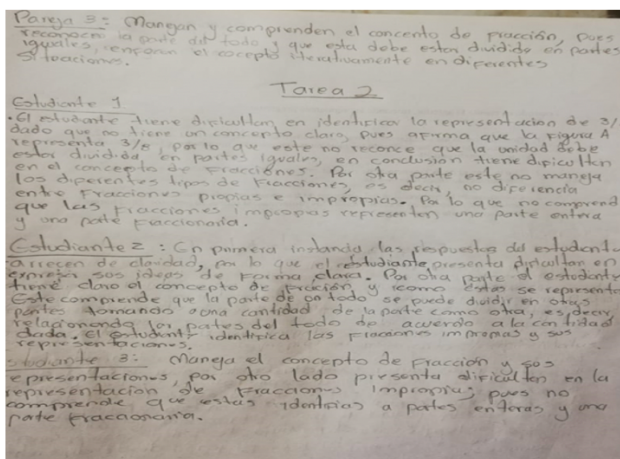 Pareja 3: Mangan y comprenden el concento de Fracción, pues
reconocen la parte del todo y que esta debe estar dividido en partes
iguales, en el iterativamente en diferentes
situaciones.
Tarea 2
Estudiante 1
• El estudiante tiene dificultan en identificar la representación de 3/
dado que no tiene un concepto claro, pues afirma que la figura A
representa 3/8, por lo que este no reconce que la unidad debe
estar dividida en partes iguales, en conclusión tiene dificultan
en el concepto de Fracciones. Por otra parte este no maneja
los diferentes tipos de Fracciones, es decir, no diferencia
entre Fracciones propias e impropias. Por lo que no comprend
que las Fracciones impropias representen una parte entera
y una parte Fraccionaria.
Estudiante 2: En primera instancia las respuestas del estudiant
carrecen de claridad, por lo que el estudiante presenta dificultan en
expresar sus ideas de forma clara. Por otra parte el estudiante
tiene claro el concepto de Fracción y como estas se representa
Este comprende que la parte de un todo se puede dividir en otras
partes tomando una cantidad de la parte como otra, es decir,
relacionando las partes del todo de acuerdo a la cantidad
dada. El estudiante identifica las Fracciones impropias y sus
representaciones.
studiante 3: Maneja el concepto de Fracción y sus
epresentaciones, por otro lado presenta dificultan en la
representación de Fracciones impropias pues no
comprende que estas a partes enteras y una
parte Fraccionaria.